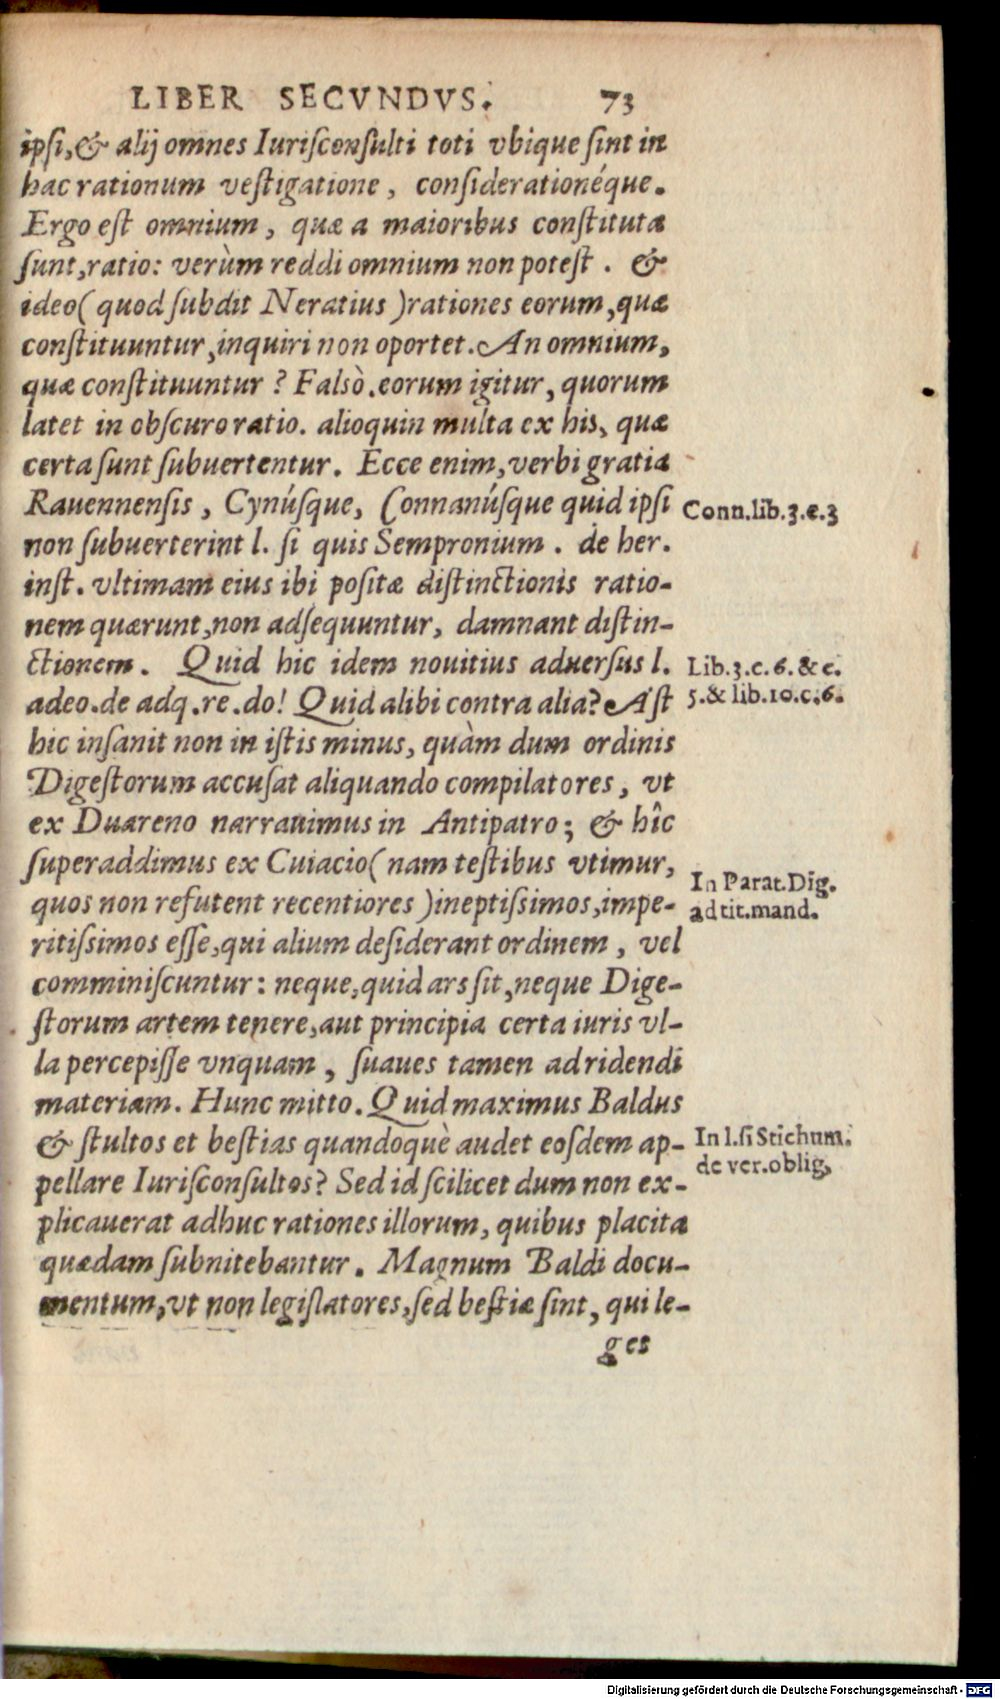 LIBER SECVNDVS. 73
ipsi, & alij omnes Iurisconsulti toti vbique sint in
hac rationum vestigatione, considerationéque.
Ergo est omnium, quæ a maioribus constituta
sunt, ratio: verùm reddi omnium non potest. &
ideo (quod subdit Neratius) rationes eorum, quæ
constituuntur, inquiri non oportet. An omnium,
quæ constituuntur? Falsò. eorum igitur, quorum
latet in obscuro ratio. alioquin multa ex his, quæ
certa sunt subuertentur. Ecce enim, verbi gratia
Rauennensis, Cynúsque, Connanúsque quid ipsi
Conn.lib.3.c.3
non subuerterint l. si quis Sempronium. de her.
inst. vltimam eius ibi positæ distinctionis ratio-
nem quærunt, non adsequuntur, damnant distin-
ctionem. Quid hic idem nouitius aduersus l.
Lib.3.c.6. & c.
adeo. de adq. re. do! Quid alibi contra alia? Ast
5. & lib.10.c.6.
hic insanit non in istis minus, quàm dum ordinis
Digestorum accusat aliquando compilatores, vt
ex Duareno narrauimus in Antipatro; & hîc
superaddimus ex Cuiacio (nam testibus vtimur,
In Parat.Dig.
quos non refutent recentiores) ineptissimos, impe-
ad tit.mand.
ritissimos esse, qui alium desiderant ordinem, vel
comminiscuntur: neque, quid ars sit, neque Dige-
storum artem tenere, aut principia certa iuris vl-
la percepisse vnquam, suaues tamen ad ridendi
materiam. Hunc mitto. Quid maximus Baldus
& stultos et bestias quandoquè audet eosdem ap-
In l.si Stichum.
de ver.oblig.
pellare Iurisconsultos? Sed id scilicet dum non ex-
plicauerat adhuc rationes illorum, quibus placita
quædam subnitebantur. Magnum Baldi docu-
mentum, vt non legislatores, sed bestiæ sint, qui le-
ges
Digitalisierung gefördert durch die Deutsche Forschungsgemeinschaft - DFG